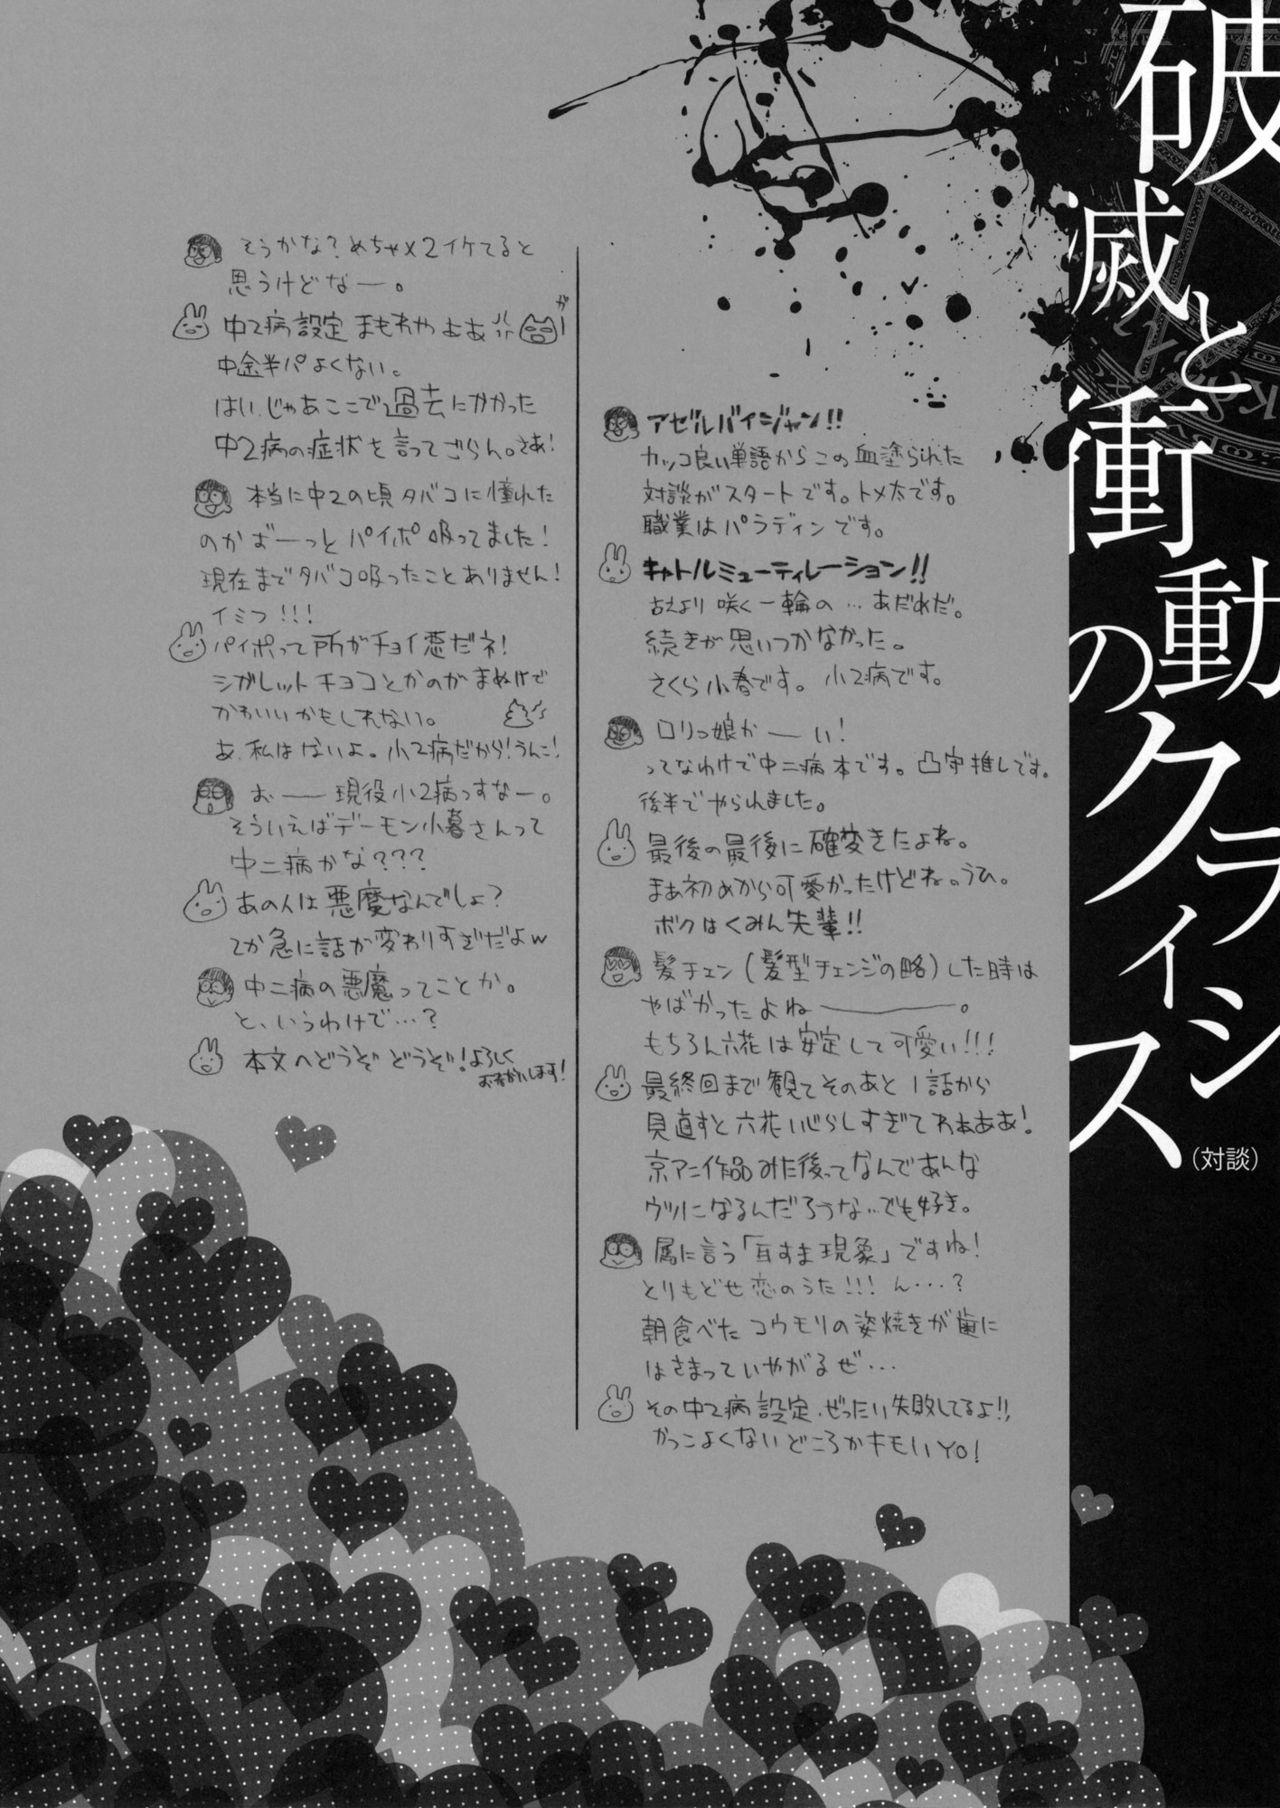 破滅と衝動のクライシス
(対談)
アゼルバイジャン!!
カッコ良い単語からこの血塗られた
対談がスタートです。トメ太です。
職業はパラディンです。
キャトルミューティレーション!!
古えより咲く一輪の…あだめだ。
続きが思いつかなかった。
さくら小春です。小2病です。
ロリっ娘かーい!
ってなわけで中二病本です。凸守推しです。
後半でやられました。
最後の最後に確変きたよね。
まぁ初めから可愛かったけどね。うひ。
ボクはくみん先輩!!
髪チェン(髪型チェンジの略)した時は
やばかったよねー。
もちろん六花は安定して可愛い!!!
最終回まで観てそのあと1話から
見直すと六花いじらしすぎてわぁああ!
京アニ作品みた後ってなんであんな
ウツになるんだろうな…でも好き。
属に言う「耳すま現象」ですね!
とりもどせ恋のうた!!!ん…?
朝食べたコウモリの姿焼きが歯に
はさまっていやがるぜ…
その中2病設定、ぜったい失敗してるよ!!
かっこよくないどころかキモいYO!
そうかな?めちゃ×2イケてると
思うけどなー。
中2病設定まもれやぁぁ
がー
中途半パよくない。
はい、じゃあここで過去にかかった
中2病の症状を言ってごらん。さあ!
本当に中2の頃タバコに憧れた
のかずーっとパイポ吸ってました!
現在までタバコ吸ったことありません!
イミフ!!!
パイポって所がチョイ悪だネ!
シガレットチョコとかのがまぬけで
かわいいかもしれない。
あ、私はないよ。小2病だから!うんこ!
おー現役小2病っすなー。
そういえばデーモン小暮さんって
中二病かな???
あの人は悪魔なんでしょ?
てか急に話が変わりすぎだよw
中二病の悪魔ってことか。
と、いうわけで…?
本文へどうぞどうぞ!よろしく
おねがいします!